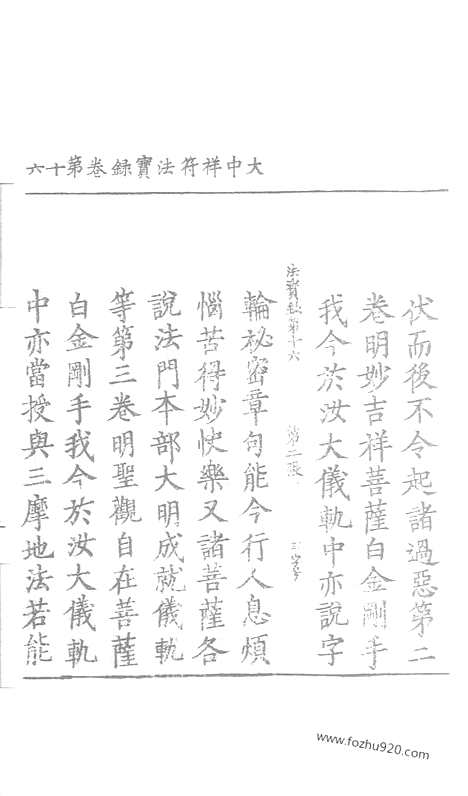 大中祥符法寶録卷第十六
伏而後不令起諸過惡第二
卷明妙吉祥菩薩白金剛手
我今於汝大儀軌中亦說字
法寶録第十六 第二張
輪祕密章句能令行人息煩
惱苦得妙快樂又諸菩薩各
說法門本部大明成就儀軌
等第三卷明聖觀自在菩薩
白金剛手我今於汝大儀軌
中亦當授與三摩地法若能
www.fozhu920.com